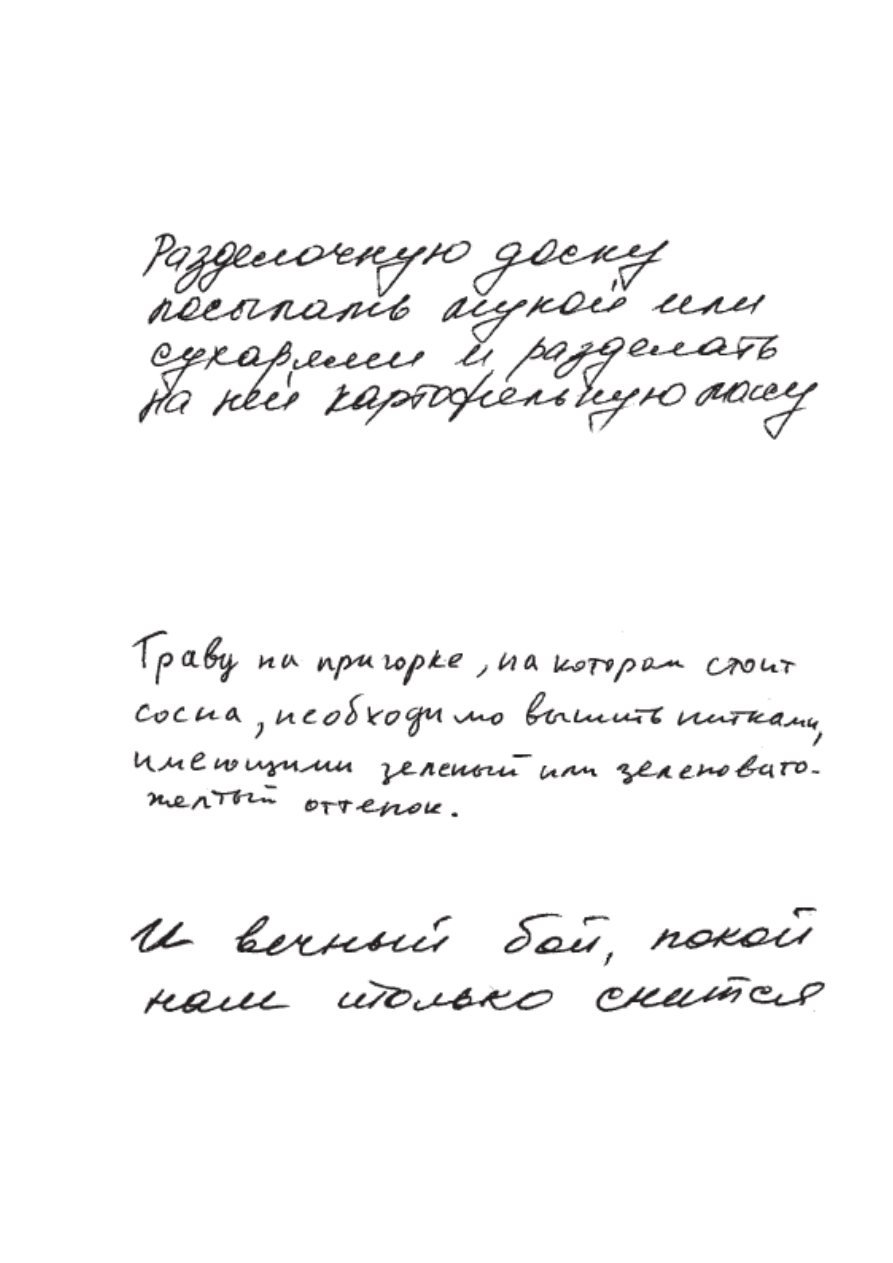 Разделочную доску
посыпать мукой или
сухарями и разделать
на ней картофельную массу
Траву на пригорке, на котором стоит
сосна, необходимо вышить нитками,
имеющими зеленый или зеленовато-
желтый оттенок.
И вечный бой, покой
нам только снится